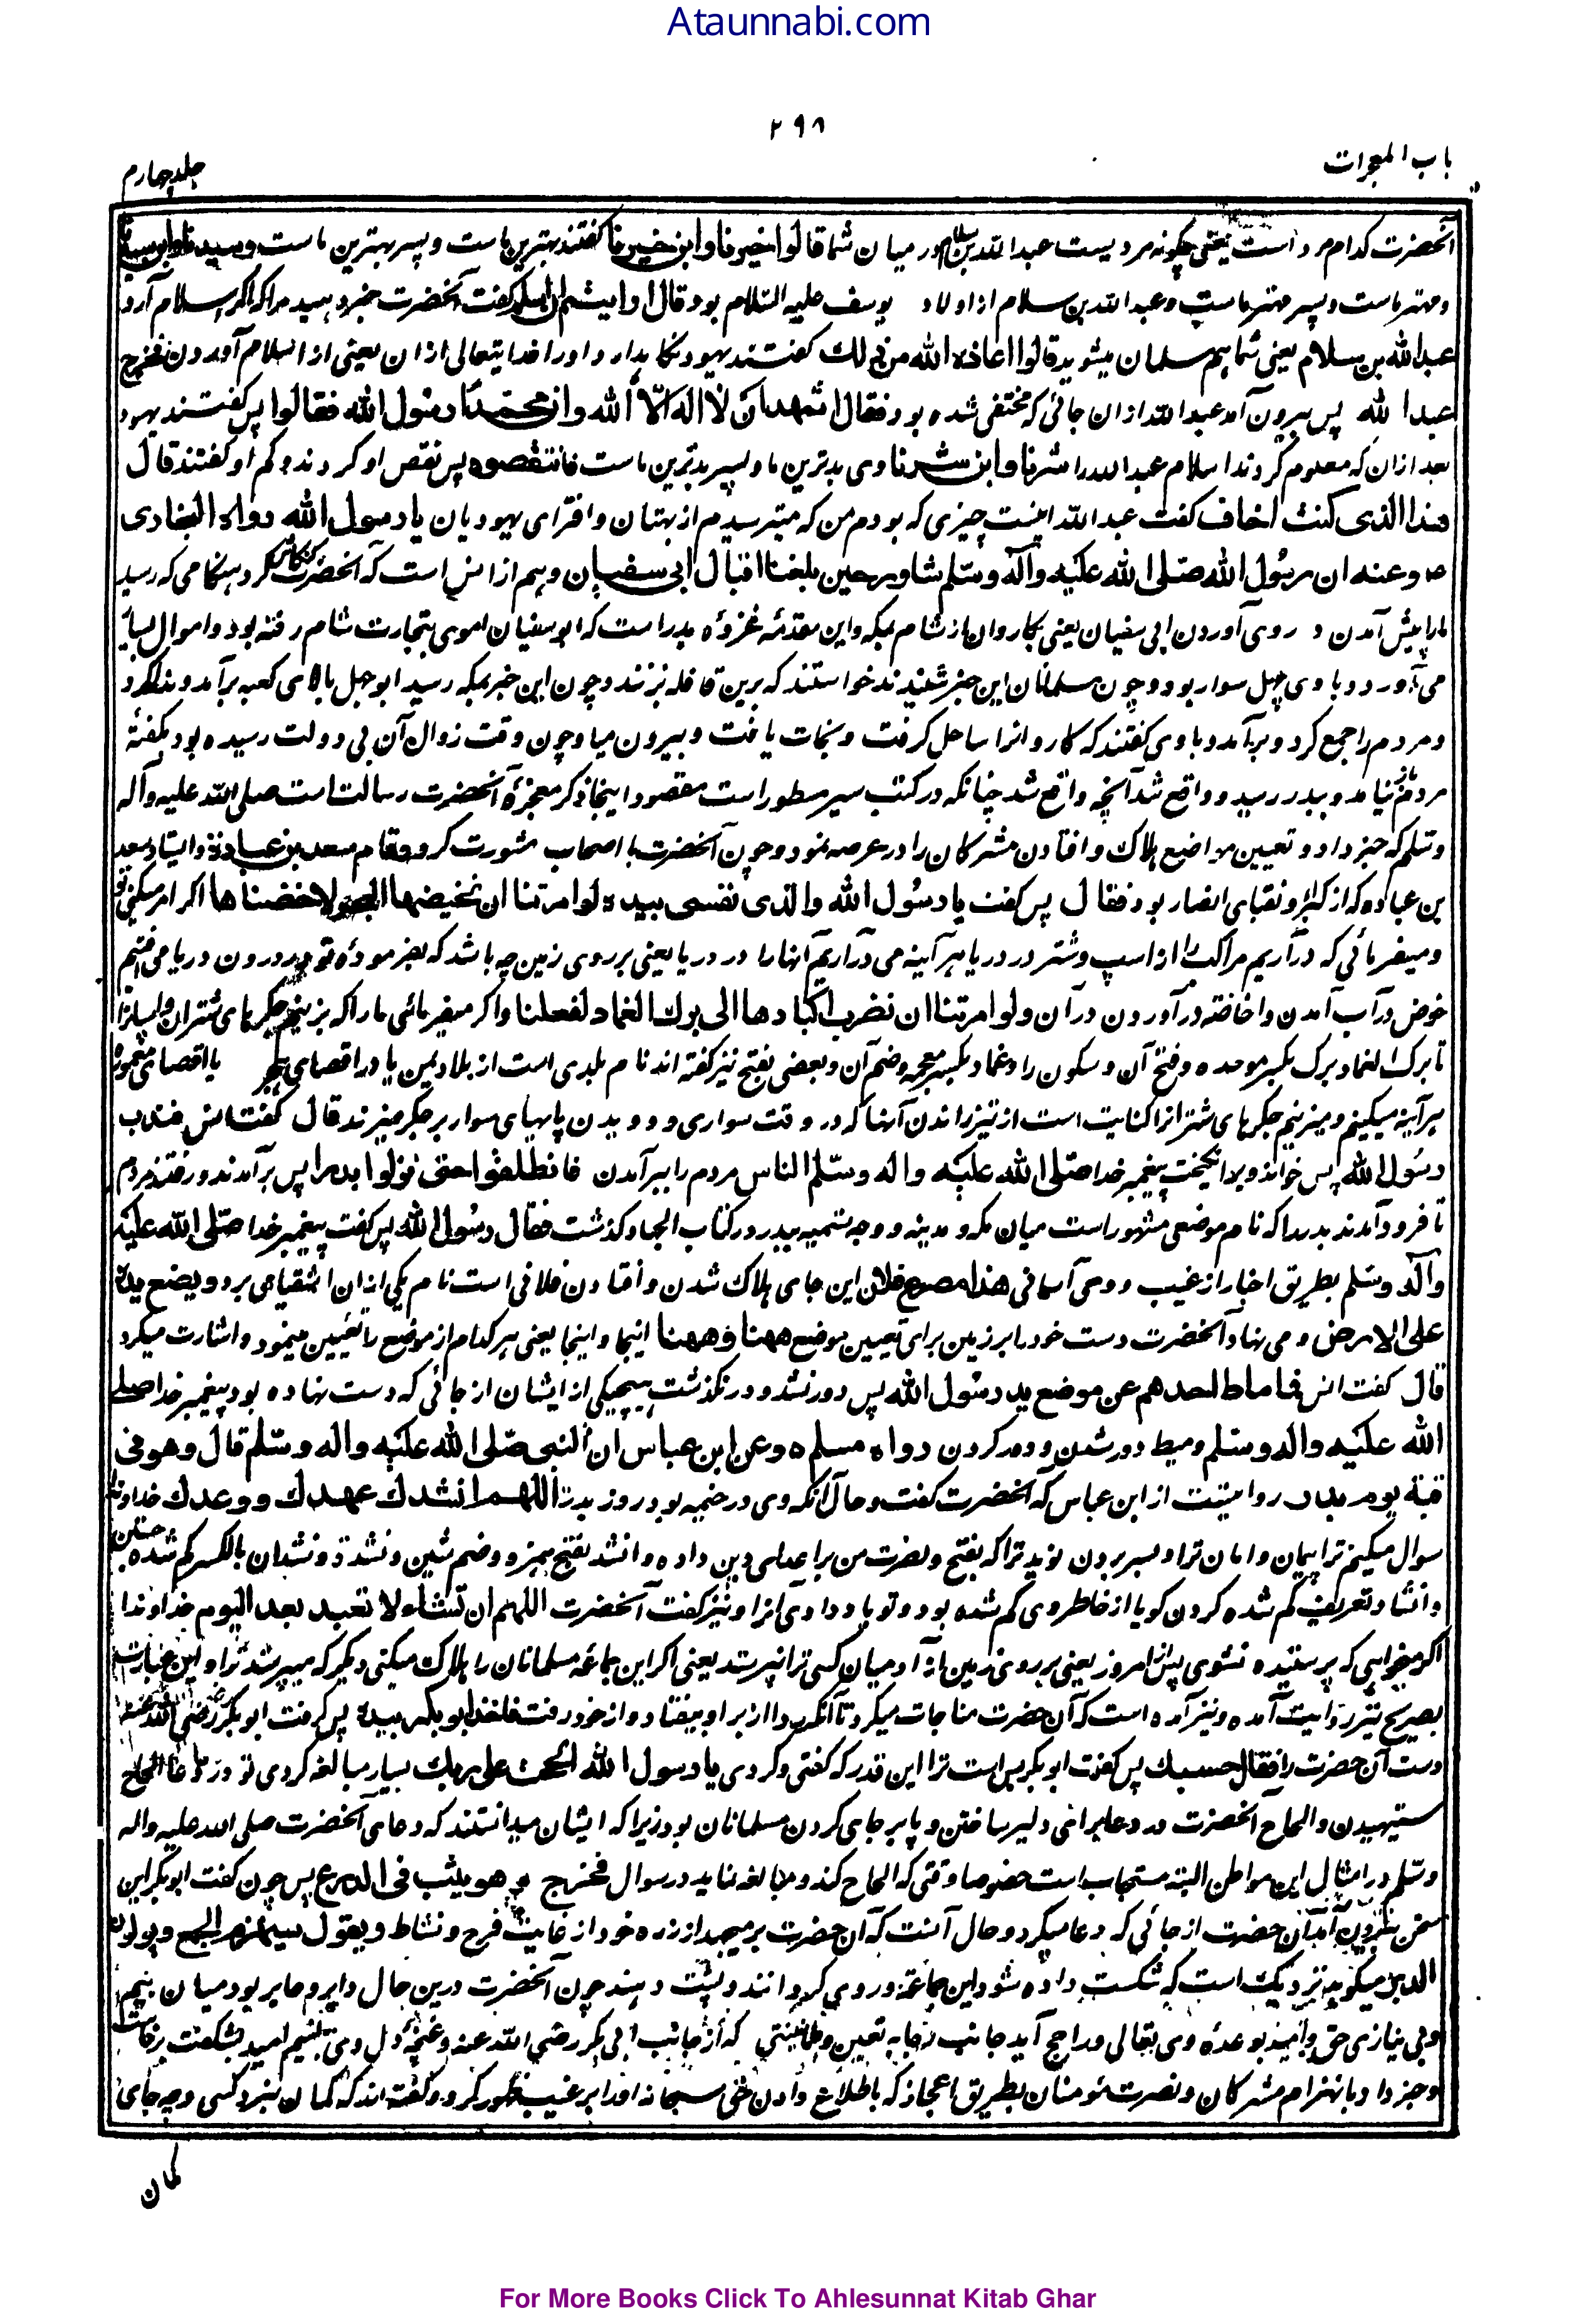 Ataunnabi.com
۲۹۸
باب المعجزات
جلد چهارم
آنحضرت کدام مرد است یعنی چگونه مردیست عبدالله بن سلام در میان شما قالوا خیرنا وابن خیرنا گفتند بهترین ماست و پسر بهترین ماست وسیدنا وابن سیدنا
ومهتر ماست و پسر مهتر ماست وعبدالله بن سلام از اولاد یوسف علیه السلام بود قال ارایتم ان اسلم گفت آنحضرت خبر دهید مرا که اگر اسلام آرد
عبدالله بن سلام یعنی شما هم مسلمان میشوید قالوا اعاذه الله من ذلك گفتند یهود نگاهدارد او را خدایتعالی ازان یعنی از اسلام آوردن فخرج
عبدا لله پس بیرون آمد عبدالله ازان جائی که مختفی شده بود فقال اشهد ان لا اله الا الله وان محمدا رسول الله فقالوا پس گفتند یهود
بعد ازان که معلوم کردند اسلام عبدالله را شرنا وابن شرنا وی بدترین ما و پسر بدترین ماست فانتقصوه پس نقص او کردند و کم او گفتند قال
هذا الذی کنت اخاف گفت عبدالله اینست چیزی که بودم من که میترسیدم از بهتان و افترای یهودیان یا رسول الله رواه البخاری
ه وعنه ان رسول الله صلی الله علیه وآله وسلم شاور حین بلغنا اقبال ابی سفیان وهم از انس است که آنحضرت کنکاش کرد هنگامی که رسید
مارا پیش آمدن و روی آوردن ابی سفیان یعنی بکاروان از شام بمکه واین مقدمه غزوه بدر است که ابوسفیان اموی بتجارت شام رفته بود و اموال بسیار
می آورد و باوی چهل سوار بود و چون مسلمانان این خبر شنیدند خواستند که برین قافله بزنند و چون این خبر بمکه رسید ابوجهل بالای کعبه برآمد و ندا کرد
ومردم را جمع کرد و برآمد و باوی گفتند که کاروان راه ساحل گرفت و نجات یافت و بیرون میا و چون وقت زوال آن بی دولت رسیده بود بگفته
مردم باز نیامد و ببدر رسید و واقع شد آنچه واقع شد چنانکه در کتب سیر مسطور است مقصود اینجا ذکر معجزه آنحضرت رسالت است صلی الله علیه وآله
وسلم که خبر داد و تعیین مواضع هلاک و افتادن مشرکان را در عرصه نمود و چون آنحضرت با اصحاب مشورت کرد وقام سعد بن عبادة وایستاد سعد
بن عباده که از کبار و نقبای انصار بود فقال پس گفت یا رسول الله والذی نفسی بیده لو امرتنا ان نخیضها البحر لاخضناها اگر امر میکنی تو
ومیفرمائی که درآریم مراکب را از اسپ و شتر در دریا هر آینه می درآریم آنها را در دریا یعنی بر روی زمین چه باشد که بفرموده تو در درون دریا می افتیم
خوض در آب آمدن واخاضته درآوردن در آن ولو امرتنا ان نضرب اکبادها الی برك الغماد لفعلنا واگر میفرمائی ما را که بزنیم جگرهای شتران و اسپانرا
تا برک الغماد برک بکسر موحده و فتح آن و سکون را و غماد بکسر معجمه و ضم آن و بعضی بفتح نیز گفته اند نام بلدی است از بلاد یمن یا در اقصای هجر یا اقصای معموره
هر آینه میکنیم و میزنیم جگرهای شترانرا کنایت است از تیز راندن آنها که در وقت سواری و دویدن پاهای سوار بر جگر میزند قال گفت انس فندب
رسول الله پس خواند و برانگیخت پیغمبر خدا صلی الله علیه واله وسلم الناس مردم را ببرآمدن فانطلقوا حتی نزلوا بدرا پس برآمدند و رفتند مردم
تا فرود آمدند بدر را که نام موضعی مشهور است میان مکه و مدینه و وجه تسمیه ببدر در کتاب الجهاد گذشت فقال رسول الله پس گفت پیغمبر خدا صلی الله علیه
وآله وسلم بطریق اخبار از غیب و وحی آسمانی هذا مصرع فلان این جای هلاک شدن و افتادن فلانی است نام یکی ازان اشقیا می برد ویضع یده
علی الارض و می نهاد آنحضرت دست خود را بر زمین برای تعیین موضع ههنا وههنا اینجا و اینجا یعنی هر کدام از موضع را تعیین مینمود و اشارت میکرد
قال گفت انس فما ماط احدهم عن موضع ید رسول الله پس دور نشد و در نگذشت هیچیکی از ایشان از جائی که دست نهاده بود پیغمبر خدا صلی
الله علیه واله وسلم ومیط دور شدن و دور کردن رواه مسلم ه وعن ابن عباس ان النبی صلی الله علیه واله وسلم قال وهو فی
قبة یوم بدر روایتست از ابن عباس که آنحضرت گفت و حال آنکه وی در خیمه بود روز بدر اللهم انشدك عهدك ووعدك خداوندا
سوال میکنم ترا پیمان و امان ترا و بسر بردن نوید ترا که بفتح و نصرت من بر اعدای دین داده و انشد بفتح همزه و ضم شین و نشدة و نشدان بالکسر گم شده جستن
وانشاد تعریف گم شده کردن گویا از خاطر وی گم شده بود و تو یاد دادی آنرا و نیز گفت آنحضرت اللهم ان تشاء لا تعبد بعد الیوم خداوندا
اگر میخواهی که پرستیده نشوی پس از امروز یعنی بر روی زمین از آدمیان کسی ترا نپرستد یعنی اگر این جماعه مسلمانان را هلاک میکنی دیگر که میپرستد ترا و این عبارت
بصریح نیز روایت آمده و نیز آمده است که آن حضرت مناجات میکرد تا آنکه ردا از بر او بیفتاد و از خود رفت فاخذ ابو بکر بیده پس گرفت ابوبکر رضی الله عنه
دست آن حضرت را فقال حسبك پس گفت ابوبکر بس است ترا این قدر که گفتی و کردی یا رسول الله الححت علی ربك بسیار مبالغه کردی تو در دعا الحاح
ستیهیدن والحاح آنحضرت در دعا برای دلیر ساختن و پابرجای کردن مسلمانان بود زیرا که ایشان میدانستند که دعای آنحضرت صلی الله علیه واله
وسلم در امثال این مواطن البته مستجاب است خصوصا وقتی که الحاح کند و مبالغه نماید در سوال فخرج وهو یثب فی الدرع پس چون گفت ابوبکر این
سخن بیرون آمد آن حضرت از جائی که دعا میکرد و حال آنست که آن حضرت بر میجهد از زره خود از غایت فرح و نشاط ویقول سیهزم الجمع ویولون
الدبر میگوید نزدیک است که شکست داده شود این جماعه و روی گردانند و پشت دهند چون آنحضرت درین حال دایر و حایر بود میان بیم
وبی نیازی حق و امید بوعده وی تعالی و راجح آید جانب رجا به تعیین وطمانینتی که از جانب ابی بکر رضی الله عنه و غنچه دل وی بنسیم امید بشگفت برخاست
وخبر داد بانهزام مشرکان و نصرت مؤمنان بطریق اعجاز که باطلاع دادن حق سبحانه او را بر غیب ظهور کرد و گفته اند که گمان نبرد کسی و چه جای
گمان
For More Books Click To Ahlesunnat Kitab Ghar